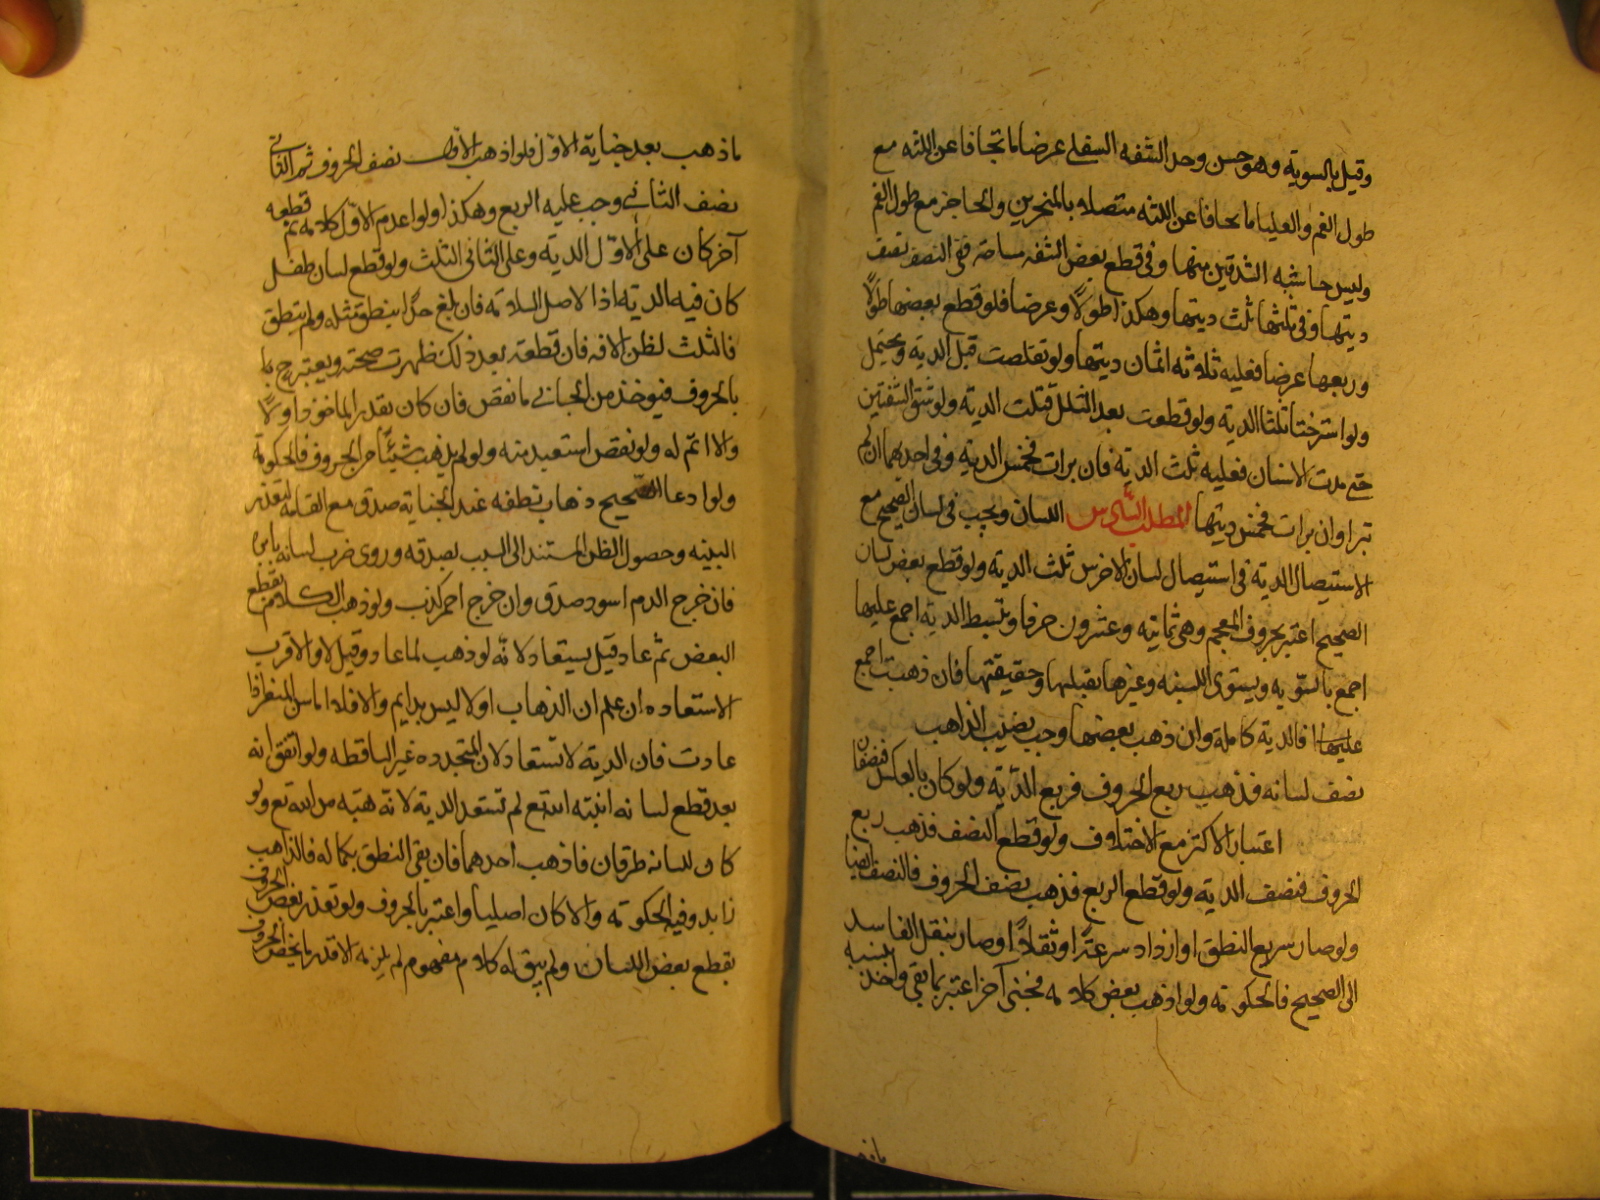 وقيل بالسوية وهو حسن وحد الشفه السفلي عرضا ما تجافا عن اللثه مع
طول الفم والعليا ما تجافا عن اللثه متصله بالمنخرين والحاجز مع طول الفم
وليس حاشيه الشدقين منها وفي قطع بعض الشفه مساحة ففي النصف نصف
ديتها وفي ثلثها ثلث ديتها وهكذا طولا وعرضا فلو قطع بعضها طولا
وربعها عرضا فعليه ثلثة اثمان ديتها ولو تقلصت قيل الدية ويحتمل
ولو استرختا ثلثا الدية ولو قطعت بعد الشلل فثلث الدية ولو شق الشفتين
حتى بدت الاسنان فعليه ثلث الدية فان برات فخمس الدية وفي احديهما ان لم
تبرا وان برات فخمس ديتها المطلب السادس اللسان ويجب في لسان الصحيح مع
الاستيصال الدية في استيصال لسان الاخرس ثلث الدية ولو قطع بعض لسان
الصحيح اعتبر بحروف المعجم وهي ثمانية وعشرون حرفا وتبسط الدية اجمع عليها
اجمع بالسوية ويستوي اللسنيه وغيرها ثقيلها وخفيفتها فان ذهبت اجمع
عليها فالدية كامله وان ذهب بعضها وجب نصيب الذاهب
نصف لسانه فذهب ربع الحروف فربع الدية ولو كان بالعكس فنصفان
اعتبار الاكثر مع الاختلاف ولو قطع النصف فذهب ربع
الحروف فنصف الدية ولو قطع الربع فذهب نصف الحروف فالنصف ايضا
ولو صار سريع النطق او ازداد سرعة او ثقلا او صار ينقل الفاسد
الى الصحيح فالحكومة ولو اذهب بعض كلامه فجنى آخر اعتبر بما بقي واخذ بنسبة
ماذهب بعد جناية الاول فلو اذهب الاول نصف الحروف ثم الثاني
نصف الثاني وجب عليه الربع وهكذا ولو اعدم الاول كلامه ثم قطعه
آخر كان على الاول الدية وعلى الثاني الثلث ولو قطع لسان طفل
كان فيه الدية اذا لاصل السلامة فان بلغ حدا ينطق مثله ولم ينطق
فالثلث لظن الافه فان قطعه بعد ذلك ظهرت صحته ويعتبر ح با
بالحروف فيوخذ من الجاني ما نقص فان كان بقدر الماخوذ اولا
والا اتم له ولو نقص استعيد منه ولو لم يذهب شيئا من الحروف فالحكومة
ولو ادعا الصحيح ذهاب نطقه عند الجناية صدق مع القسامه لتعذر
البينه وحصول الظن المستند الى السبب بصدقه وروي ضرب لسانه بابره
فان خرج الدم اسود صدق وان خرج احمر كذب ولو ذهب الكلام بقطع
البعض ثم عاد قيل يستعاد لانه لو ذهب لما عاد وقيل لا والاقرب
الاستعاده ان علم ان الذهاب اولا ليس بدايم والا فلا اما سن المثغر اذا
عادت فان الدية لا تستعاد لان المتجدده غير الساقطه ولو اتفق انه
بعد قطع لسانه انبته الله تع لم تستعد الدية لانه هبه من الله تع ولو
كان للسانه طرفان فاذهب احدهما فان بقي النطق بكماله فالذاهب
زايد وفيه الحكومة والا كان اصليا واعتبر بالحروف ولو تعذر بعض الحروف
بقطع بعض اللسان ولم يبق له كلام مفهوم لم يلزمه الا قدر ما يخص الحروف